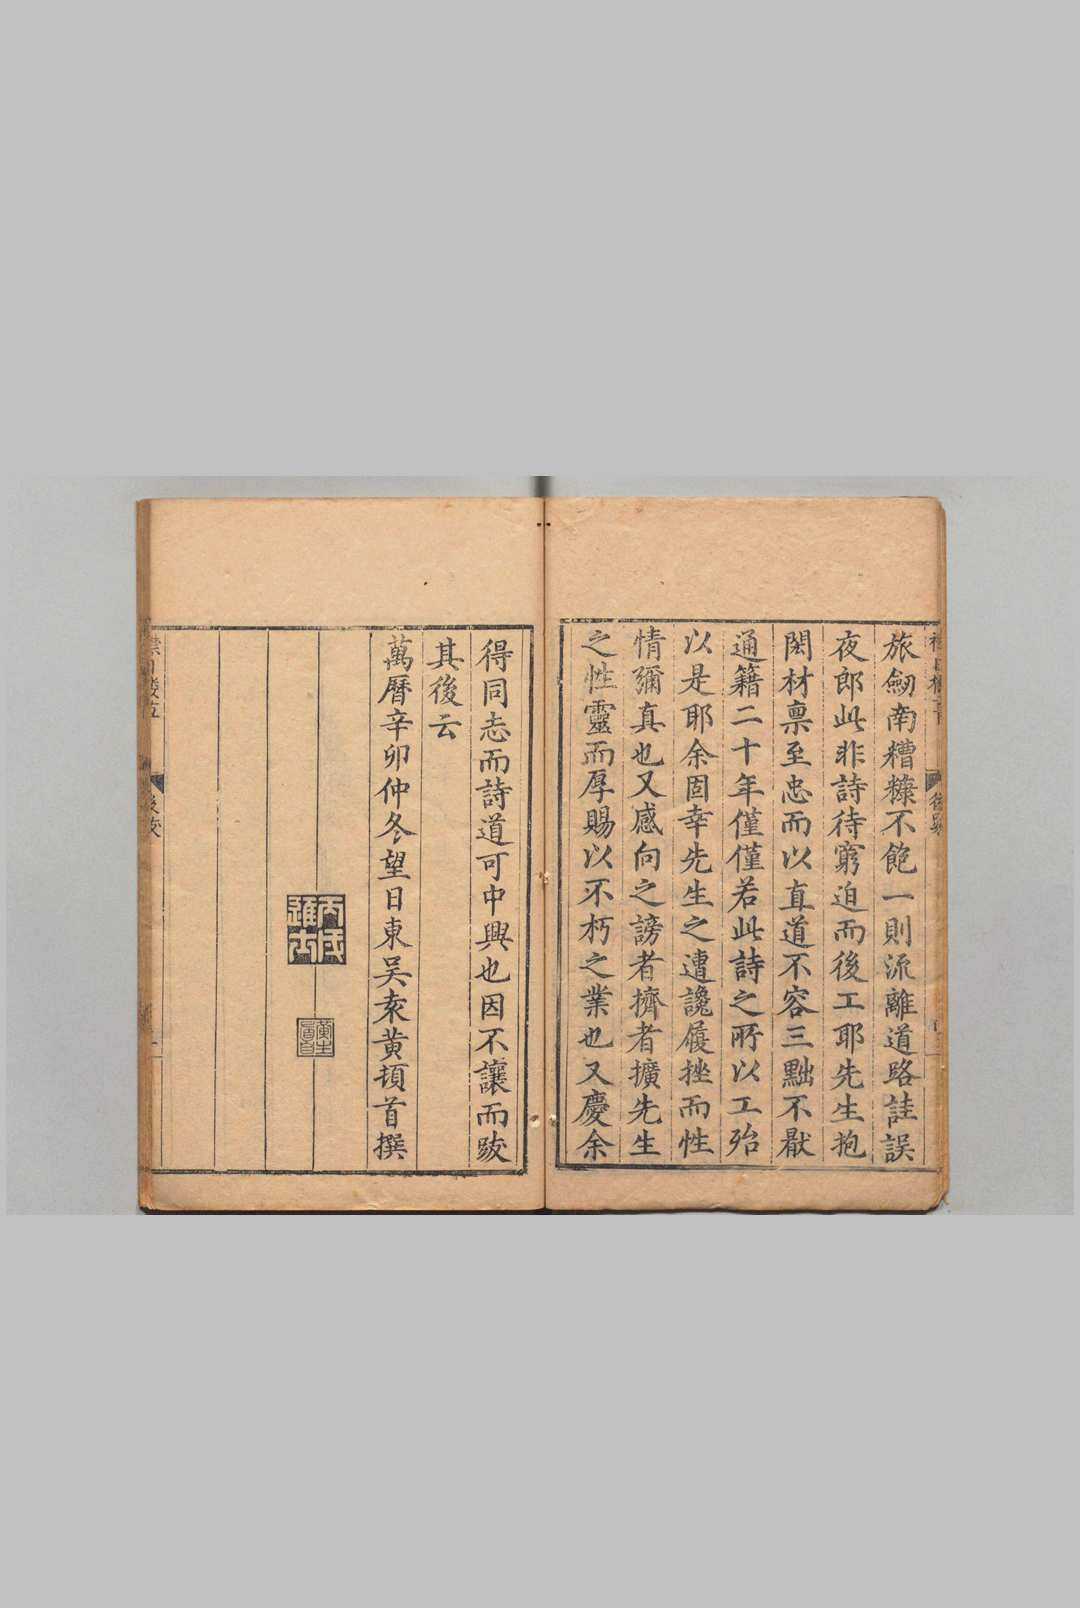 旅劒南糟糠不飽一則流離道路詿誤
夜郎此非詩待窮迫而後工耶先生抱
閎材禀至忠而以直道不容三黜不厭
通籍二十年僅僅若此詩之所以工殆
以是耶余固幸先生之遭讒履挫而性
情彌真也又感向之謗者擠者擴先生
之性靈而厚賜以不朽之業也又慶余
得同志而詩道可中興也因不讓而跋
其後云
萬曆辛卯仲冬望日東吳袠黃頓首撰
丙戌進士
後跋